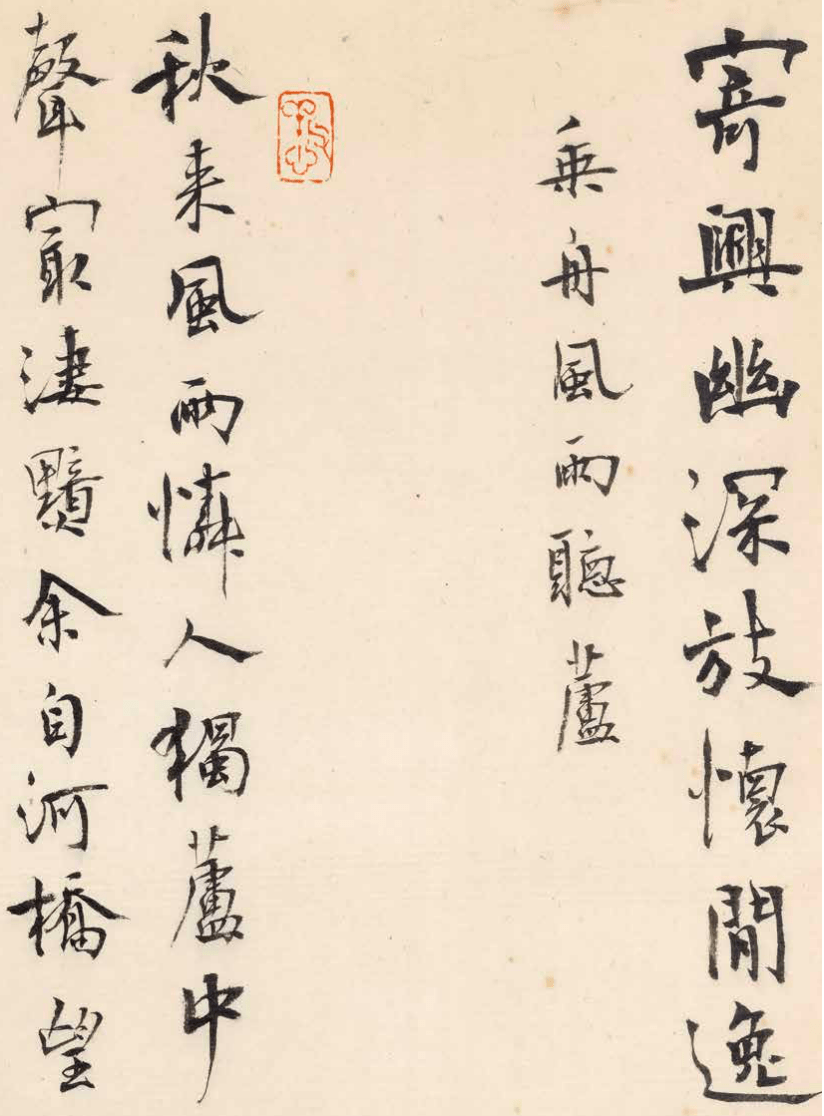 寄興幽深放懷閒逸
乗舟風雨聽蘆
秋来風雨憐人獨蘆中
聲㝡淒黯余自河橋望